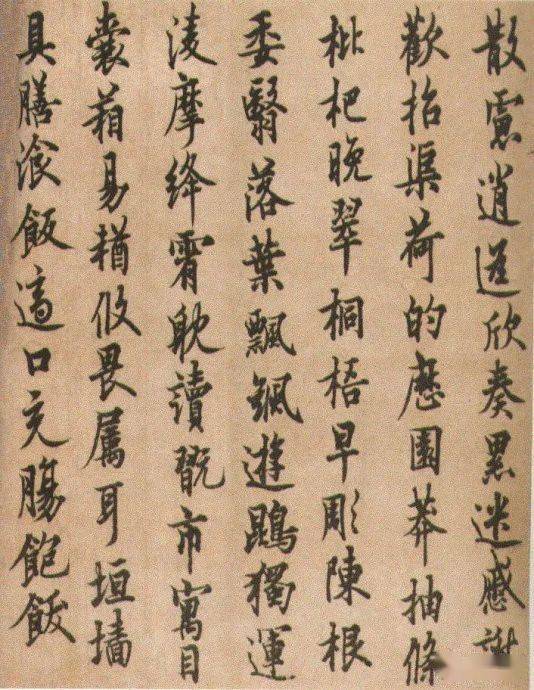 散慮逍遥欣奏累遣慼謝
歡招渠荷的歷園莽抽條
枇杷晚翠桐梧早彫陳根
委翳落葉飄颻遊鵾獨運
淩摩絳霄耽讀翫市寓目
囊葙易輶攸畏属耳垣墻
具膳飡飯適口充腸飽飫